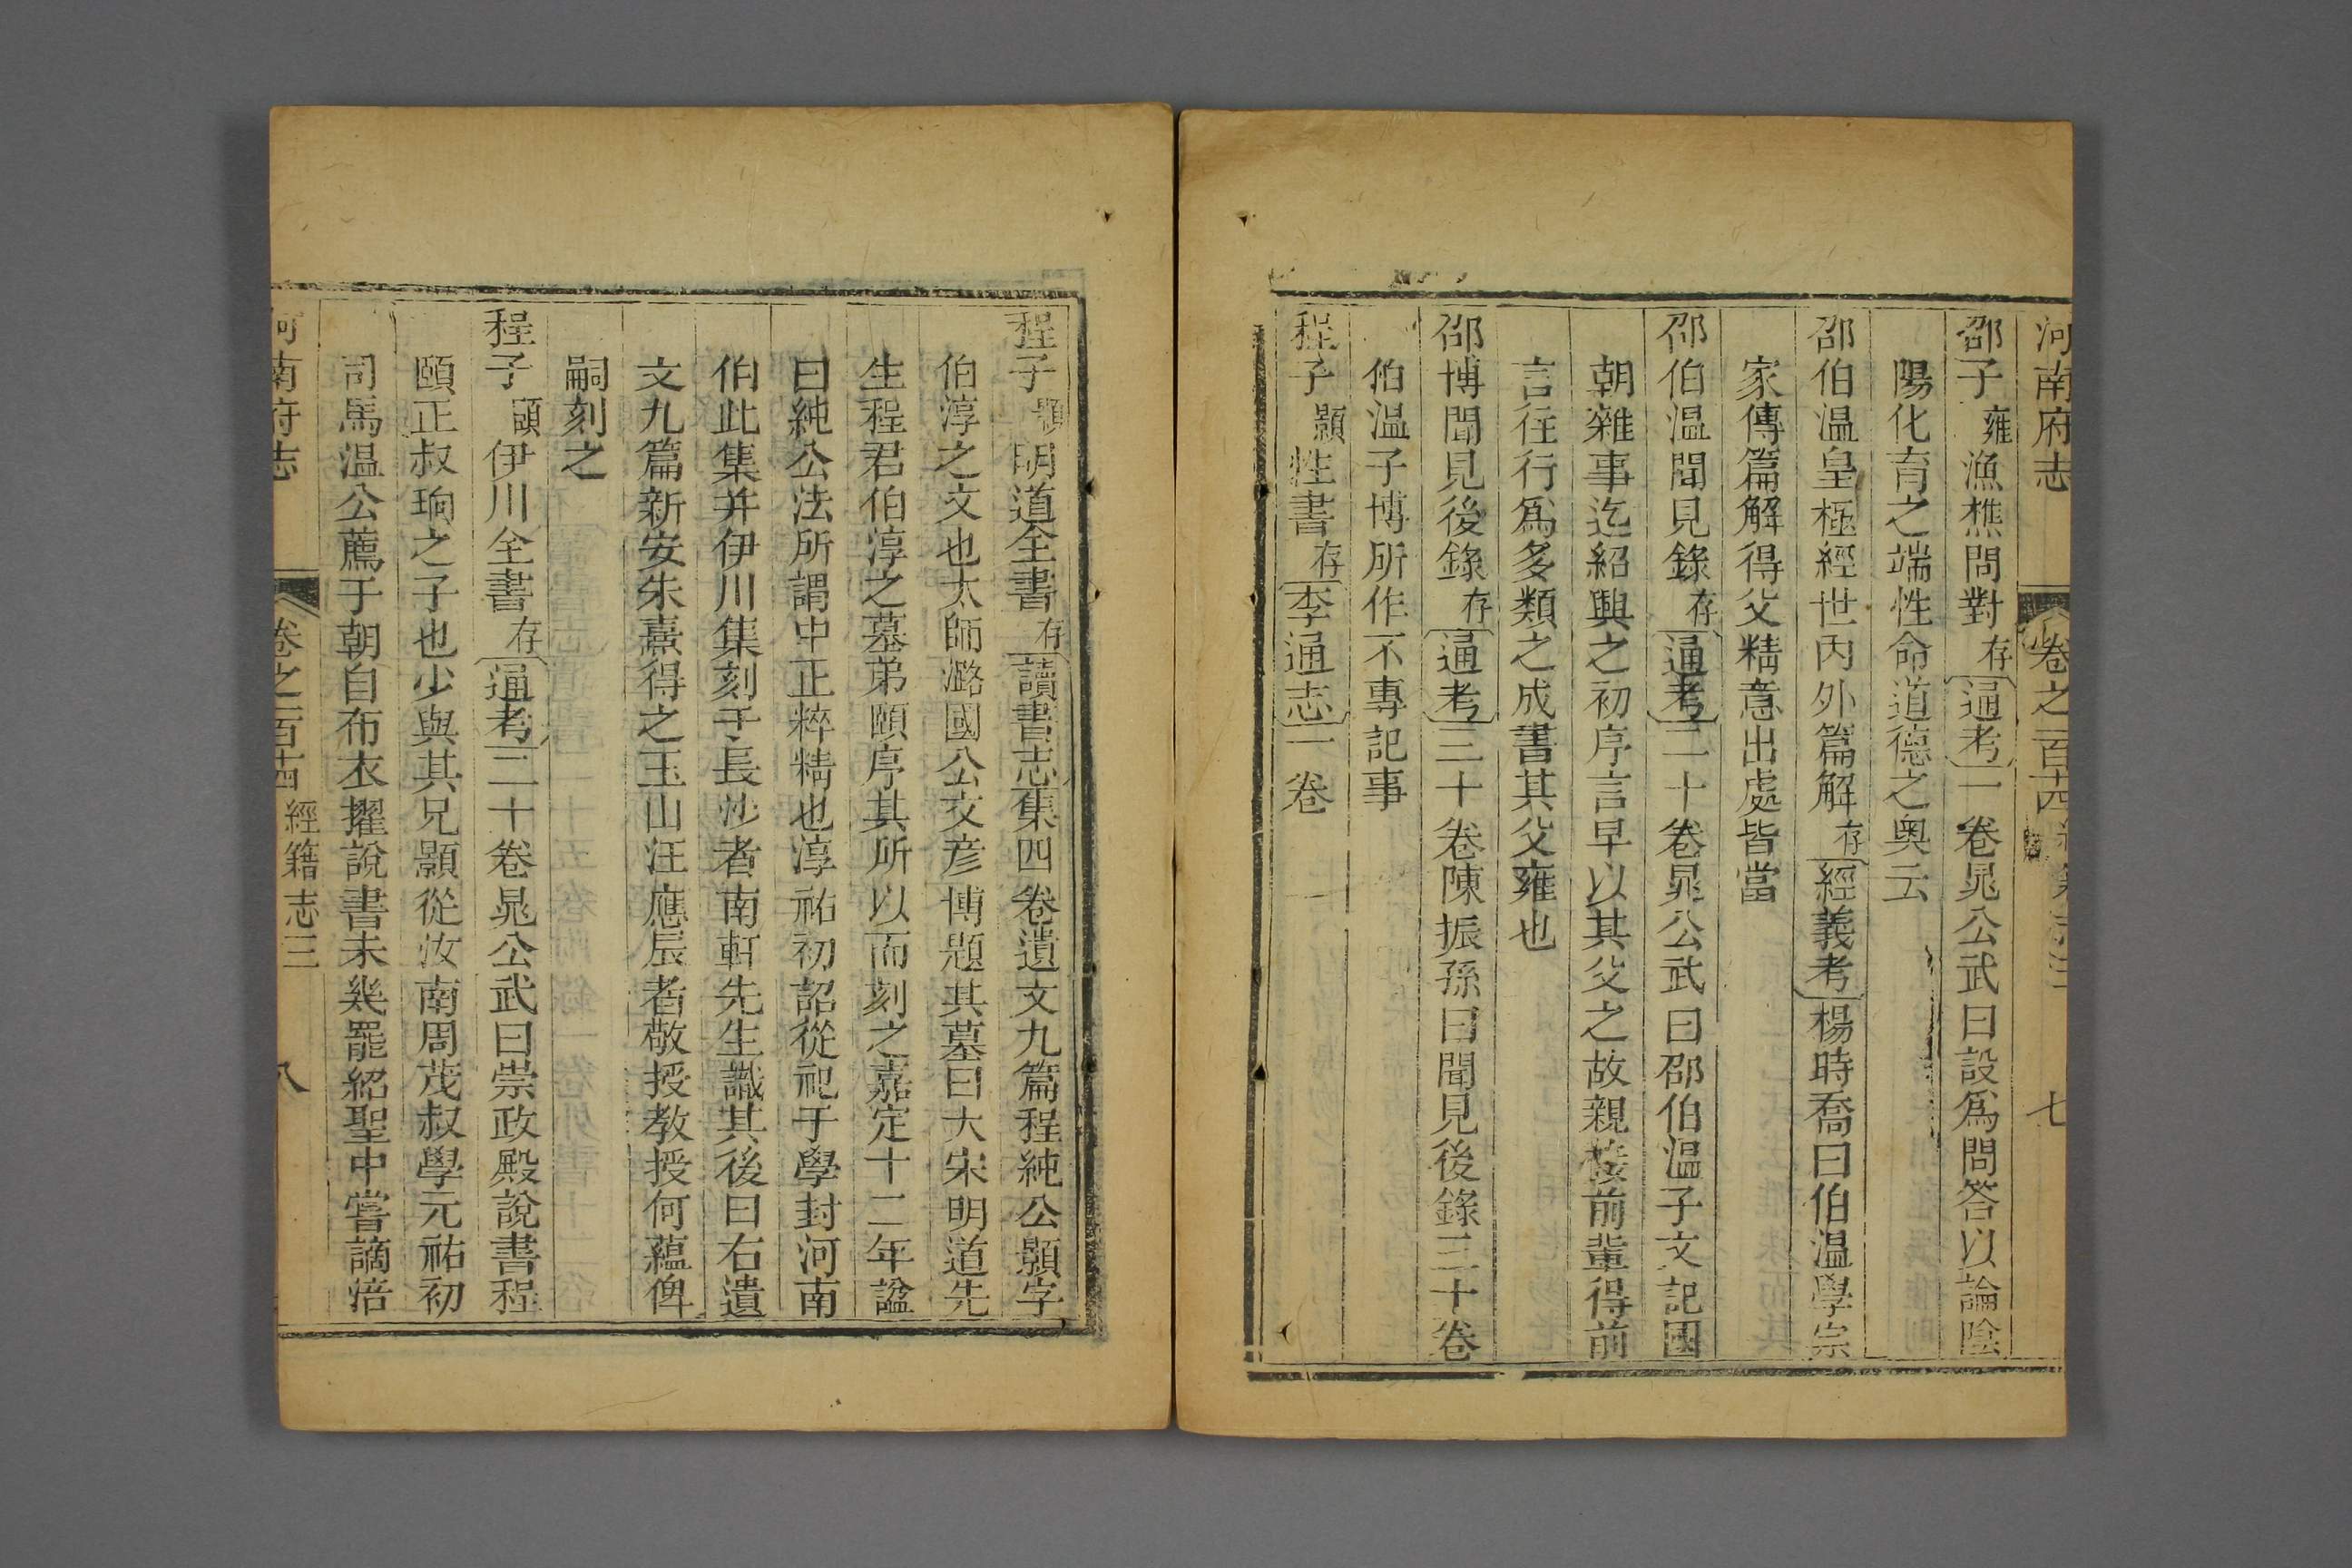 河南府志 卷之百十四 經籍志三 七
邵子雍漁樵問對存通考一卷晁公武曰設爲問答以論陰
陽化育之端性命道德之奧云
邵伯溫皇極經世內外篇解存經義考楊時喬曰伯溫學宗
家傳篇解得父精意出處皆當
邵伯溫聞見錄存通考二十卷晁公武曰邵伯溫子文記國
朝雜事迄紹興之初序言早以其父之故親接前輩得前
言往行爲多類之成書其父雍也
邵博聞見後錄存通考三十卷陳振孫曰聞見後錄三十卷
伯溫子博所作不專記事
程子顥性書存李通志一卷
程子顥明道全書存讀書志集四卷遺文九篇程純公顥字
伯淳之文也太師潞國公文彦博題其墓曰大宋明道先
生程君伯淳之墓弟頤序其所以而刻之嘉定十二年諡
曰純公法所謂中正粹精也淳祐初詔從祀于學封河南
伯此集并伊川集刻于長沙者南軒先生識其後曰右遺
文九篇新安朱熹得之玉山汪應辰者敬授教授何蘊俾
嗣刻之
程子頤伊川全書存通考二十卷晁公武曰崇政殿說書程
頤正叔珦之子也少與其兄顥從汝南周茂叔學元祐初
司馬溫公薦于朝自布衣擢說書未幾罷紹聖中嘗謫涪
河南府志 卷之百十四 經籍志三 八